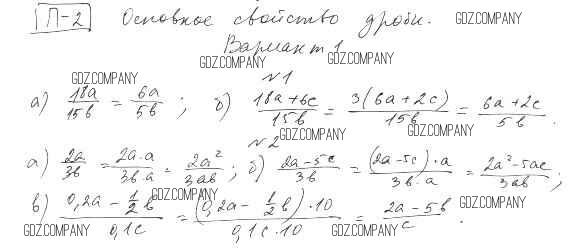 П-2 Основное свойство дроби. GDZ.COMPANY
Вариант 1
GDZ.COMPANY GDZ.COMPANY
GDZ.COMPANY №1
а) 18a/15b = 6a/5b ; б) (18a+6c)/15b = 3(6a+2c)/15b = (6a+2c)/5b .
№2 GDZ.COMPANY GDZ.COMPANY
а) 2a/3b = 2a·a/3b·a = 2a²/3ab ; б) (2a-5c)/3b = (2a-5c)·a/3b·a = (2a²-5ac)/3ab ;
GDZ.COMPANY
в) (0,2a - 1/2 b)/0,1c = (0,2a - 1/2 b)·10/0,1c·10 = (2a-5b)/c . GDZ.COMPANY
GDZ.COMPANY GDZ.COMPANY